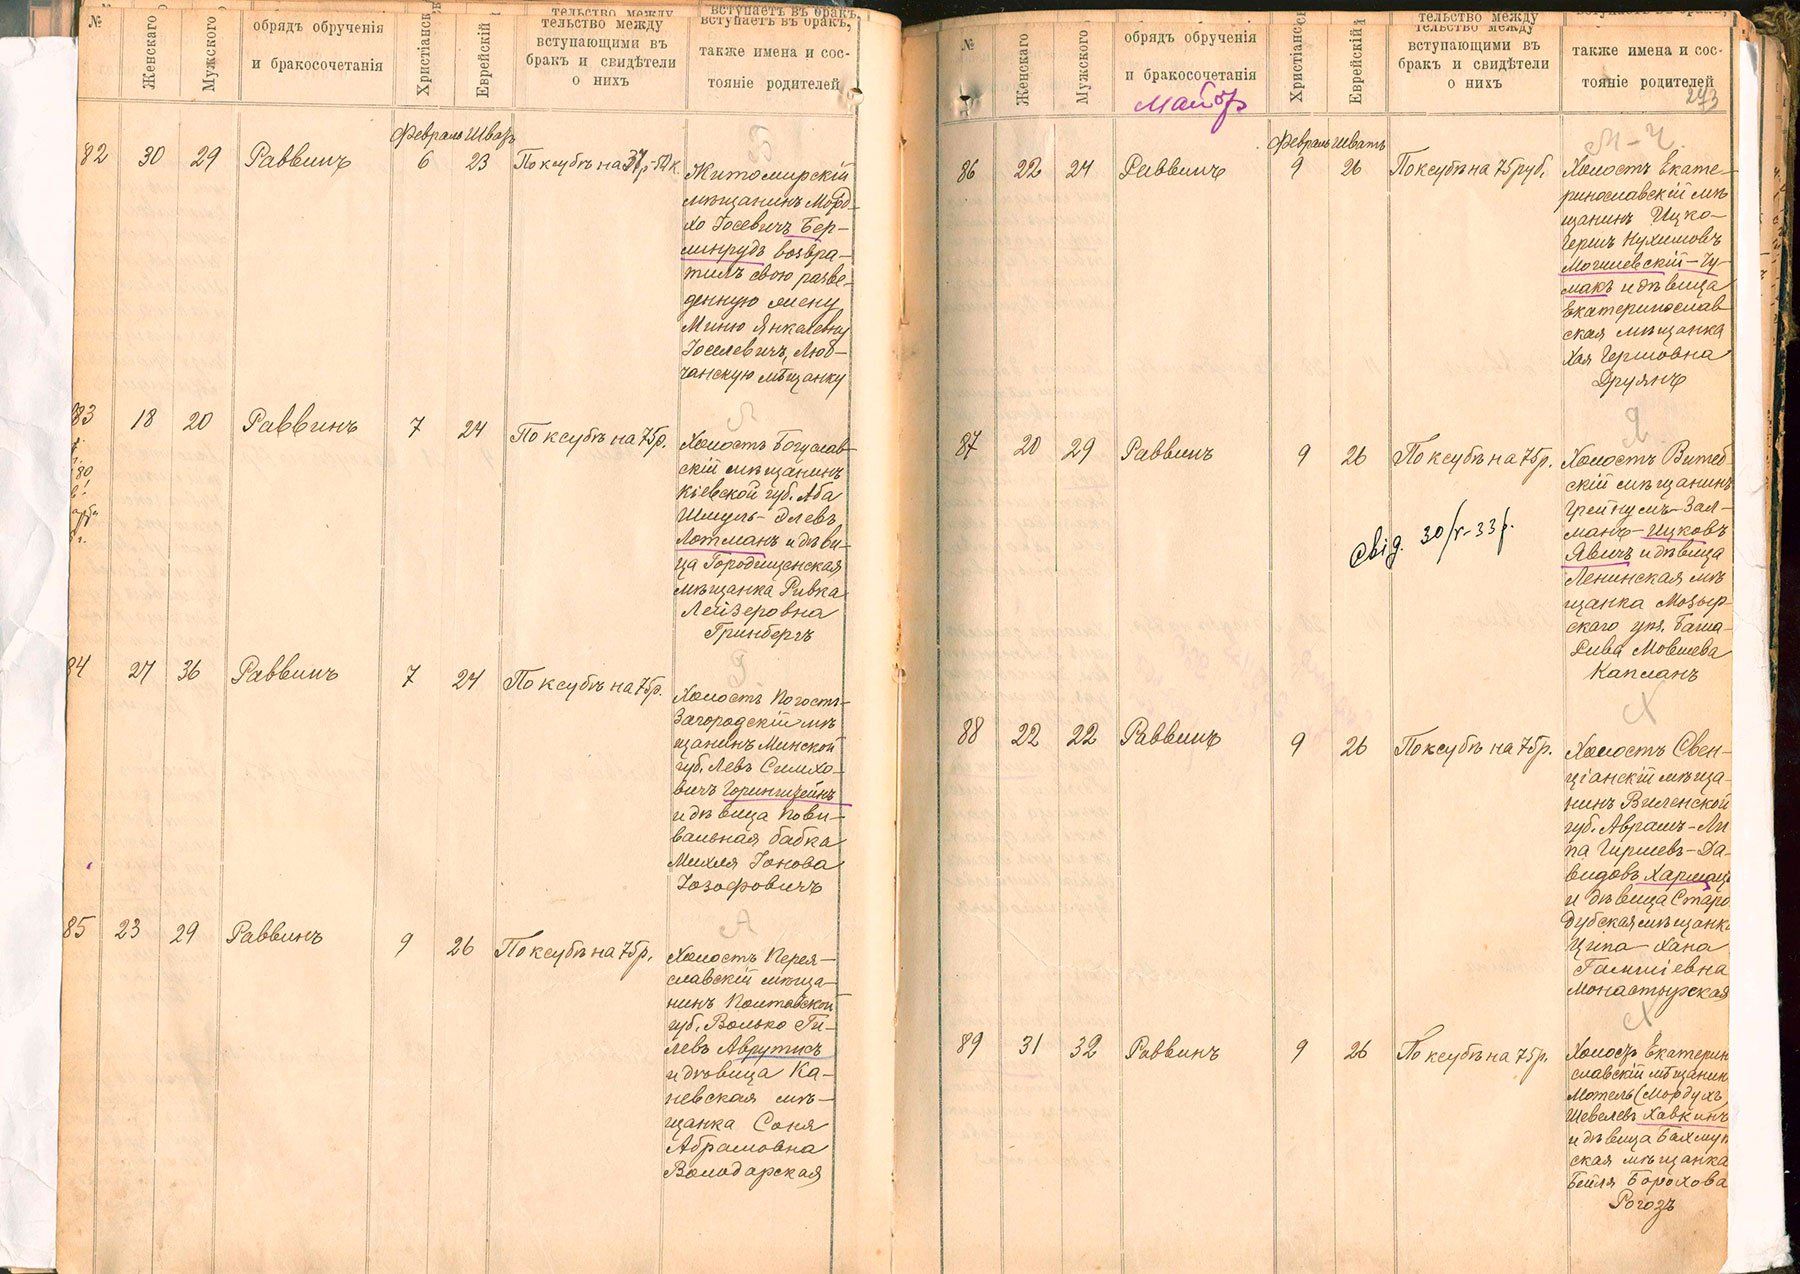 №
Женскаго
Мужского
обрядъ обрученія
и бракосочетанія
Еврейскій
тельство между
вступающими въ
бракъ и свидѣтели
о нихъ
вступаетъ въ бракъ,
также имена и сос-
тояніе родителей
Февраль Шватъ
Б
82 30 29 Раввинъ 6 23 По ксубѣ на 37р-50к.
Житомирскій
мѣщанинъ Морд-
хо Іосевичъ Бер-
линрудъ возвра-
тилъ свою разве-
денную жену
Миню Янкелевну
Іоселевичъ, Люб-
чанскую мѣщанку
Л
83 18 20 Раввинъ 7 24 По ксубѣ на 75р.
Холостъ Богуслав-
скій мѣщанинъ
Кіевской губ. Аба
Шмуль-Элевъ
Лотманъ и дѣви-
ца Городищенская
мѣщанка Ривка
Лейзеровна
Гринбергъ
Г.
84 27 36 Раввинъ 7 24 По ксубѣ на 75р.
Холостъ Погостъ-
Загородскій мѣ-
щанинъ Минской
губ. Левъ Симхо-
вичъ Горинштейнъ
и дѣвица пови-
вальная бабка
Михля Іонова
Іозофовичъ
А
85 23 29 Раввинъ 9 26 По ксубѣ на 75р.
Холостъ Перея-
славскій мѣща-
нинъ Полтавской
губ. Волько Ги-
левъ Аврутисъ
и дѣвица Ка-
невская мѣ-
щанка Соня
Абрамовна
Володарская
№
Женскаго
Мужского
обрядъ обрученія
и бракосочетанія
Майор
Еврейскій
тельство между
вступающими въ
бракъ и свидѣтели
о нихъ
также имена и сос-
тояніе родителей
273
Февраль Шватъ
М-Ч.
86 22 24 Раввинъ 9 26 По ксубѣ на 75 руб.
Холостъ Екате-
ринославскій мѣ-
щанинъ Ицко-
Гершъ Нухимовъ
Могилевскій-Чу-
макъ и дѣвица
Екатеринослав-
ская мѣщанка
Хая Гершовна
Друянъ
Я
87 20 29 Раввинъ 9 26 По ксубѣ на 75р.
Свід. 30/V-33 р.
Холостъ Витеб-
скій мѣщанинъ
Грейнумъ-Зал-
манъ-Ицковъ
Явичъ и дѣвица
Ленинская мѣ-
щанка Мозыр-
скаго уѣз. Баша-
Рива Мовшева
Капланъ
Х
88 22 22 Раввинъ 9 26 По ксубѣ на 75р.
Холостъ Свен-
ціанскій мѣща-
нинъ Виленской
губ. Аврамъ-Ли-
па Гиршевъ-Да-
видовъ Хармацъ
и дѣвица Старо
дубская мѣщанка
Ципа-Хана
Гамшіевна
Монастырская
Х
89 31 32 Раввинъ 9 26 По ксубѣ на 75р.
Холостъ Екатерин
славскій мѣщанин
Мотель (Мордухъ
Шевелевъ Хавкинъ
и дѣвица Бахмут
ская мѣщанка
Бейля Борохова
Рогозъ